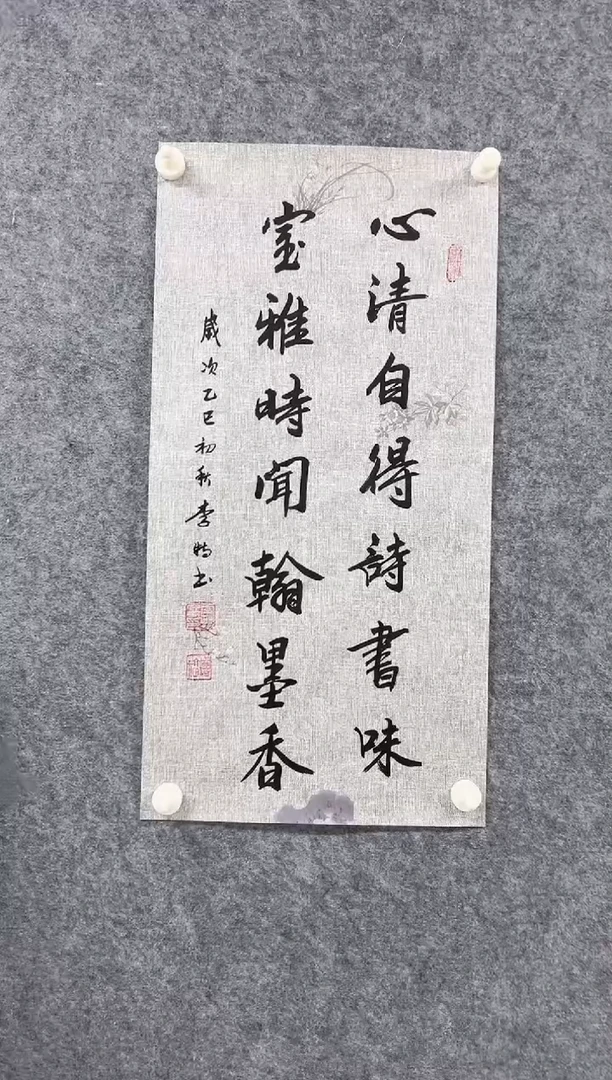 心清自得詩書味
室雅時聞翰墨香
歲次乙巳初秋李书